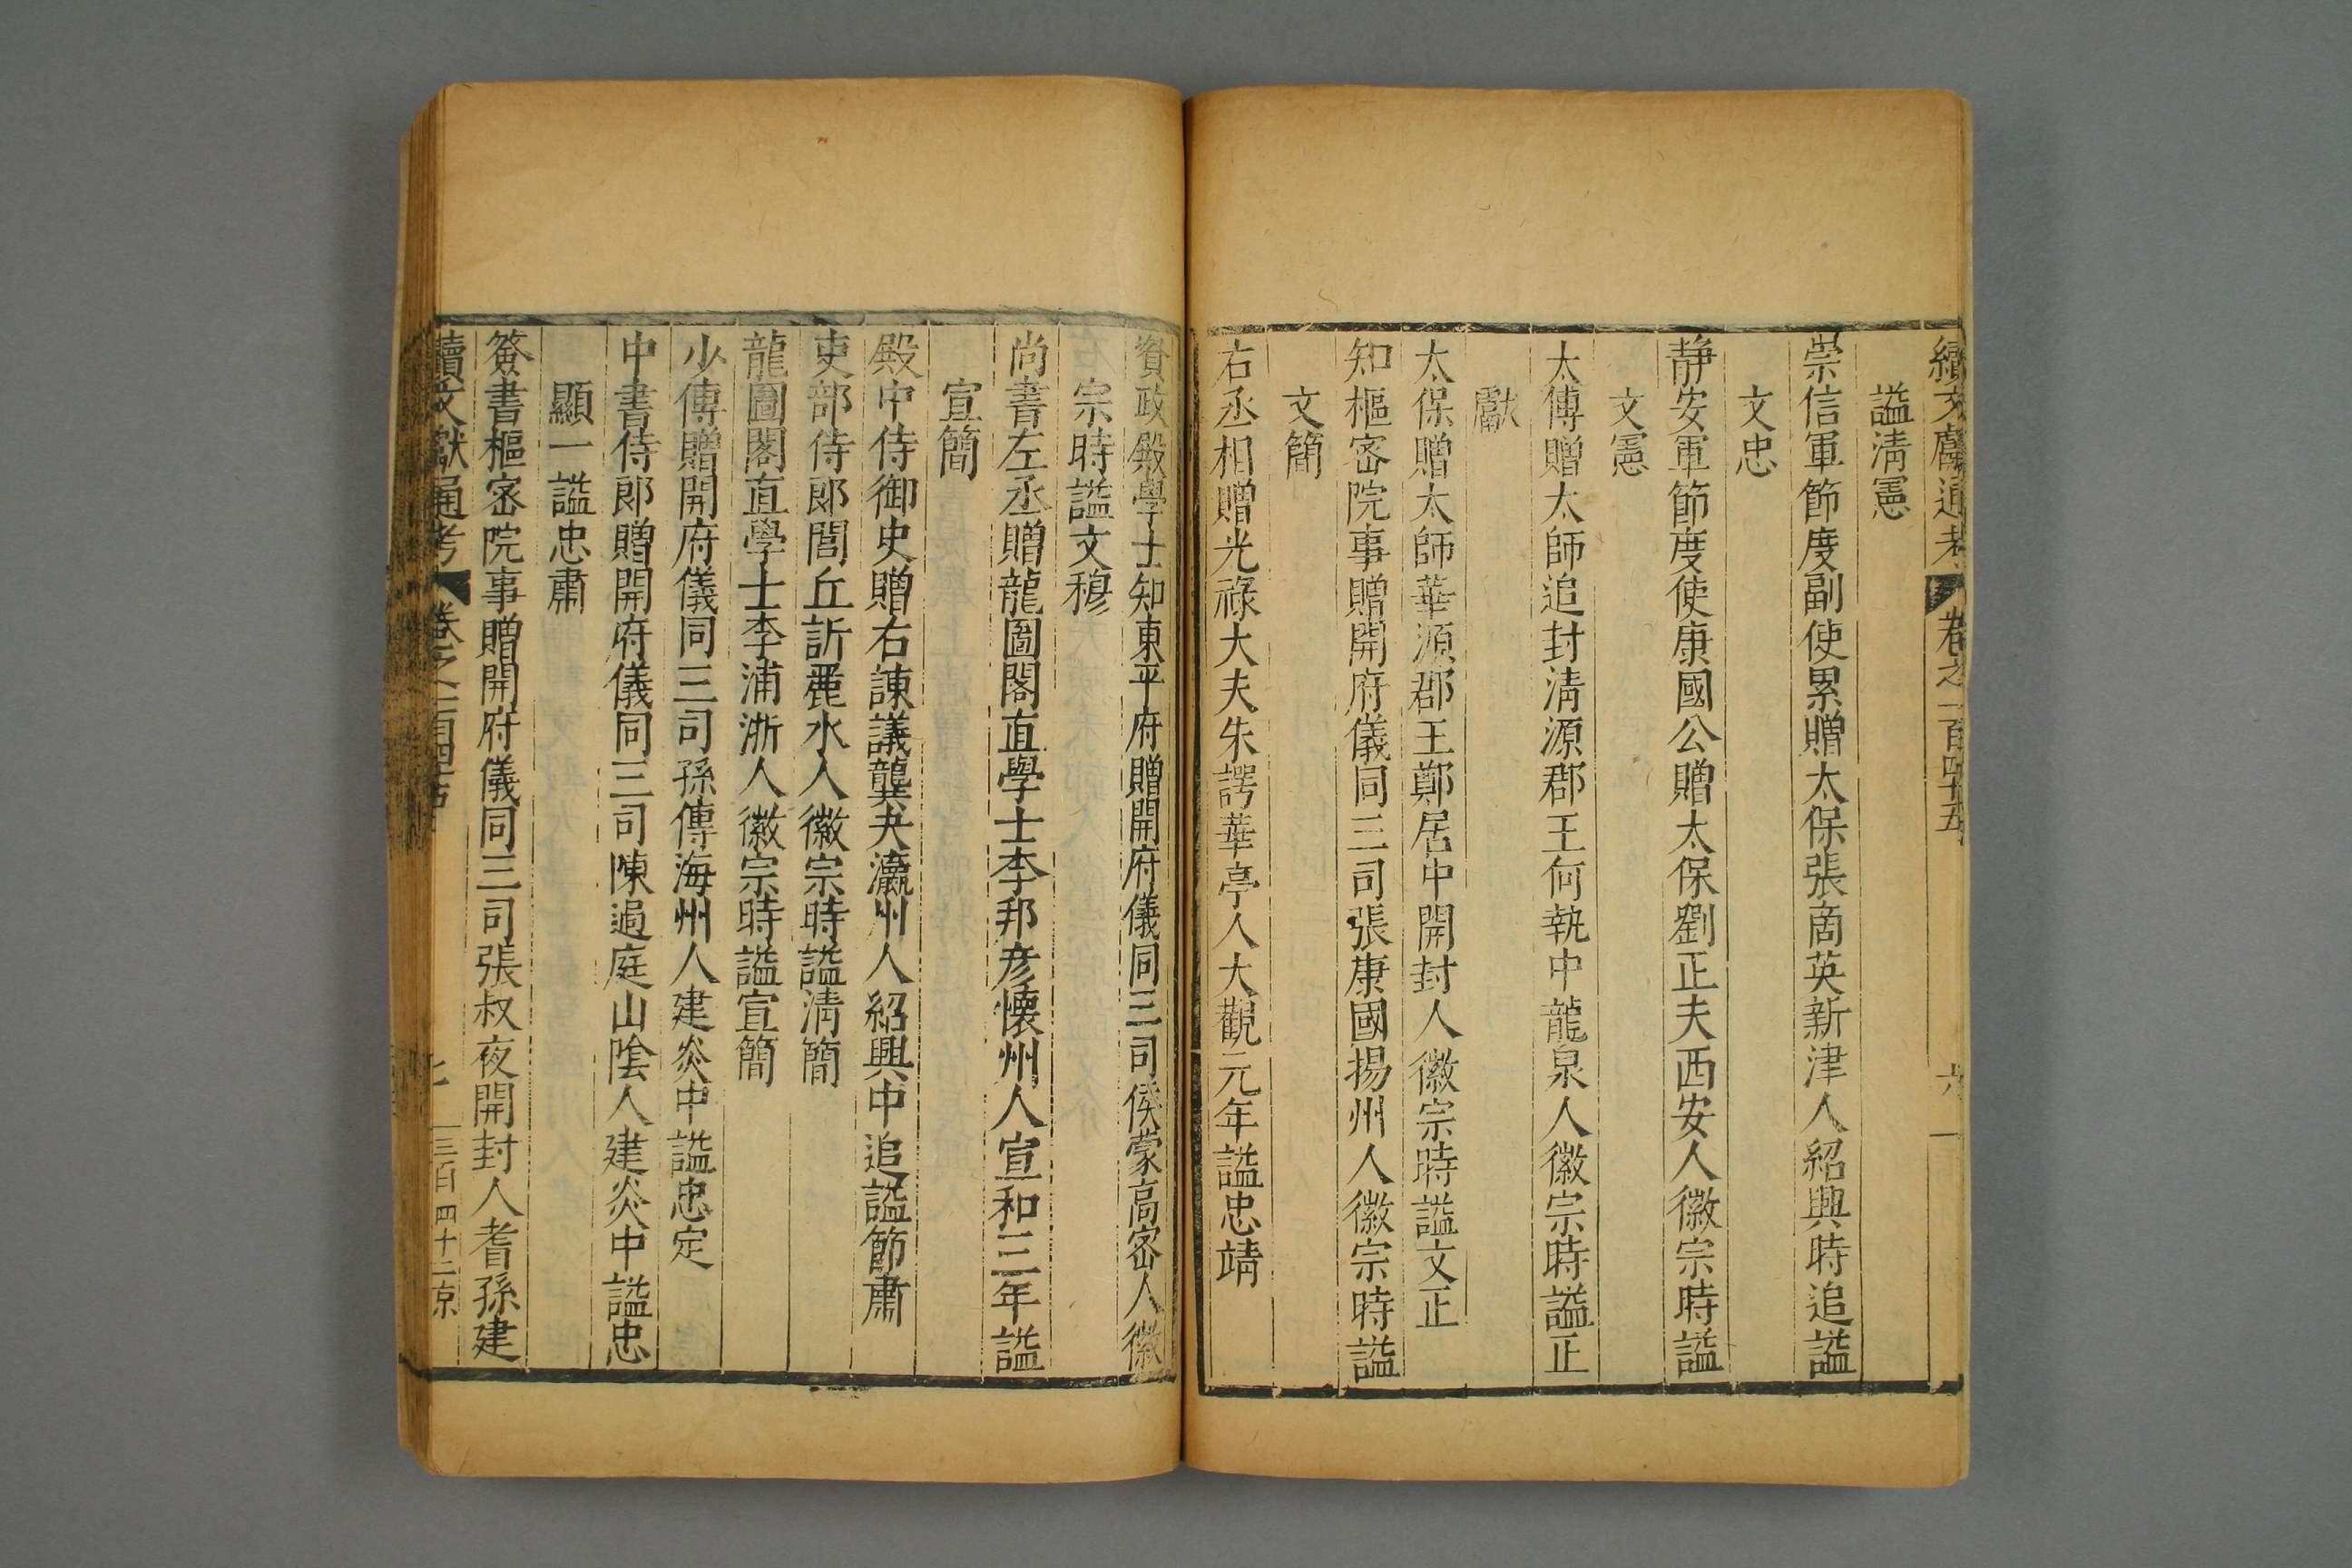 續文獻通考 卷之一百四十五 六
諡淸憲
崇信軍節度副使累贈太保張商英新津人紹興時追諡
文忠
靜安軍節度使康國公贈太保劉正夫西安人徽宗時諡
文憲
太傅贈太師追封淸源郡王何執中龍泉人徽宗時諡正
獻
太保贈太師華源郡王鄭居中開封人徽宗時諡文正
知樞密院事贈開府儀同三司張康國揚州人徽宗時諡
文簡
右丞相贈光祿大夫朱諤華亭人大觀元年諡忠靖
資政殿學士知東平府贈開府儀同三司侯蒙高密人徽
宗時諡文穆
尚書左丞贈龍圖閣直學士李邦彥懷州人宣和三年諡
宣簡
殿中侍御史贈右諫議龔夬瀛州人紹興中追諡節肅
吏部侍郎閭丘訢麗水人徽宗時諡淸簡
龍圖閣直學士李浦浙人徽宗時諡宣簡
少傅贈開府儀同三司孫傅海州人建炎中諡忠定
中書侍郎贈開府儀同三司陳過庭山陰人建炎中諡忠
顯一諡忠肅
簽書樞密院事贈開府儀同三司張叔夜開封人耆孫建
續文獻通考 卷之一百四十五 七 三百四十二 京